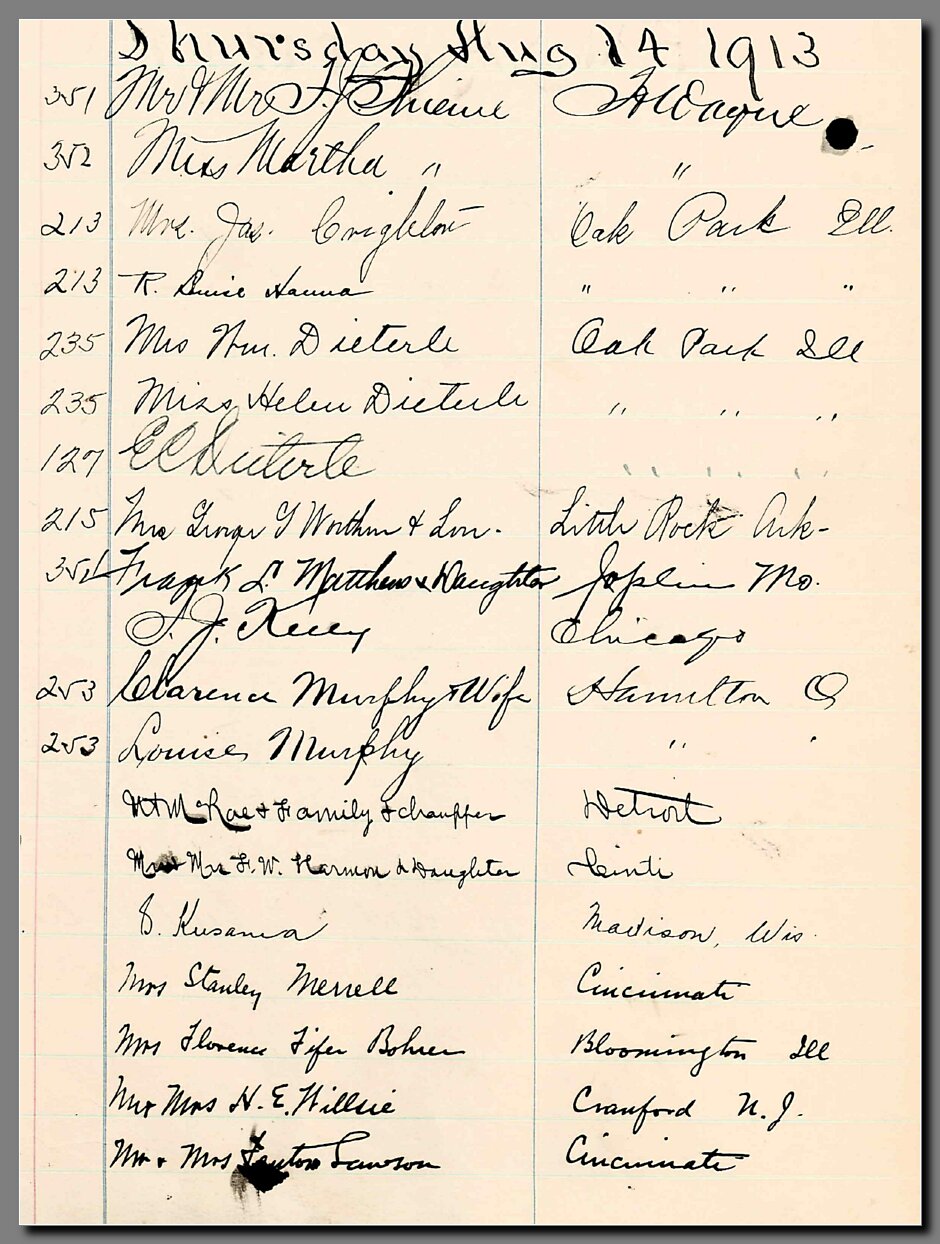 Thursday Aug 14 1913
351 Mr & Mrs F. J. Thieme Ft Wayne
352 Miss Martha " "
213 Mrs. Jas. Crighton Oak Park Ill.
213 R. Louise Hanna " " "
235 Mrs Wm. Dieterle Oak Park Ill
235 Miss Helen Dieterle " " "
127 E C Dieterle " " " "
215 Mrs George G Worthen & Son - Little Rock Ark-
Frank L Matthews & Daughter Joplin Mo.
S. J. Kelly Chicago
253 Clarence Murphy & Wife Hamilton O
253 Louise Murphy " "
McRae & Family & chauffeur Detroit
Mr & Mrs F. W. Harmon & Daughter Cinti
S. Kusama Madison, Wis.
Mrs Stanley Merrell Cincinnati
Mrs Florence Fifer Bohrer Bloomington Ill
Mr & Mrs H. E. Willsie Cranford N. J.
Mr & Mrs Fenton Lawson Cincinnati